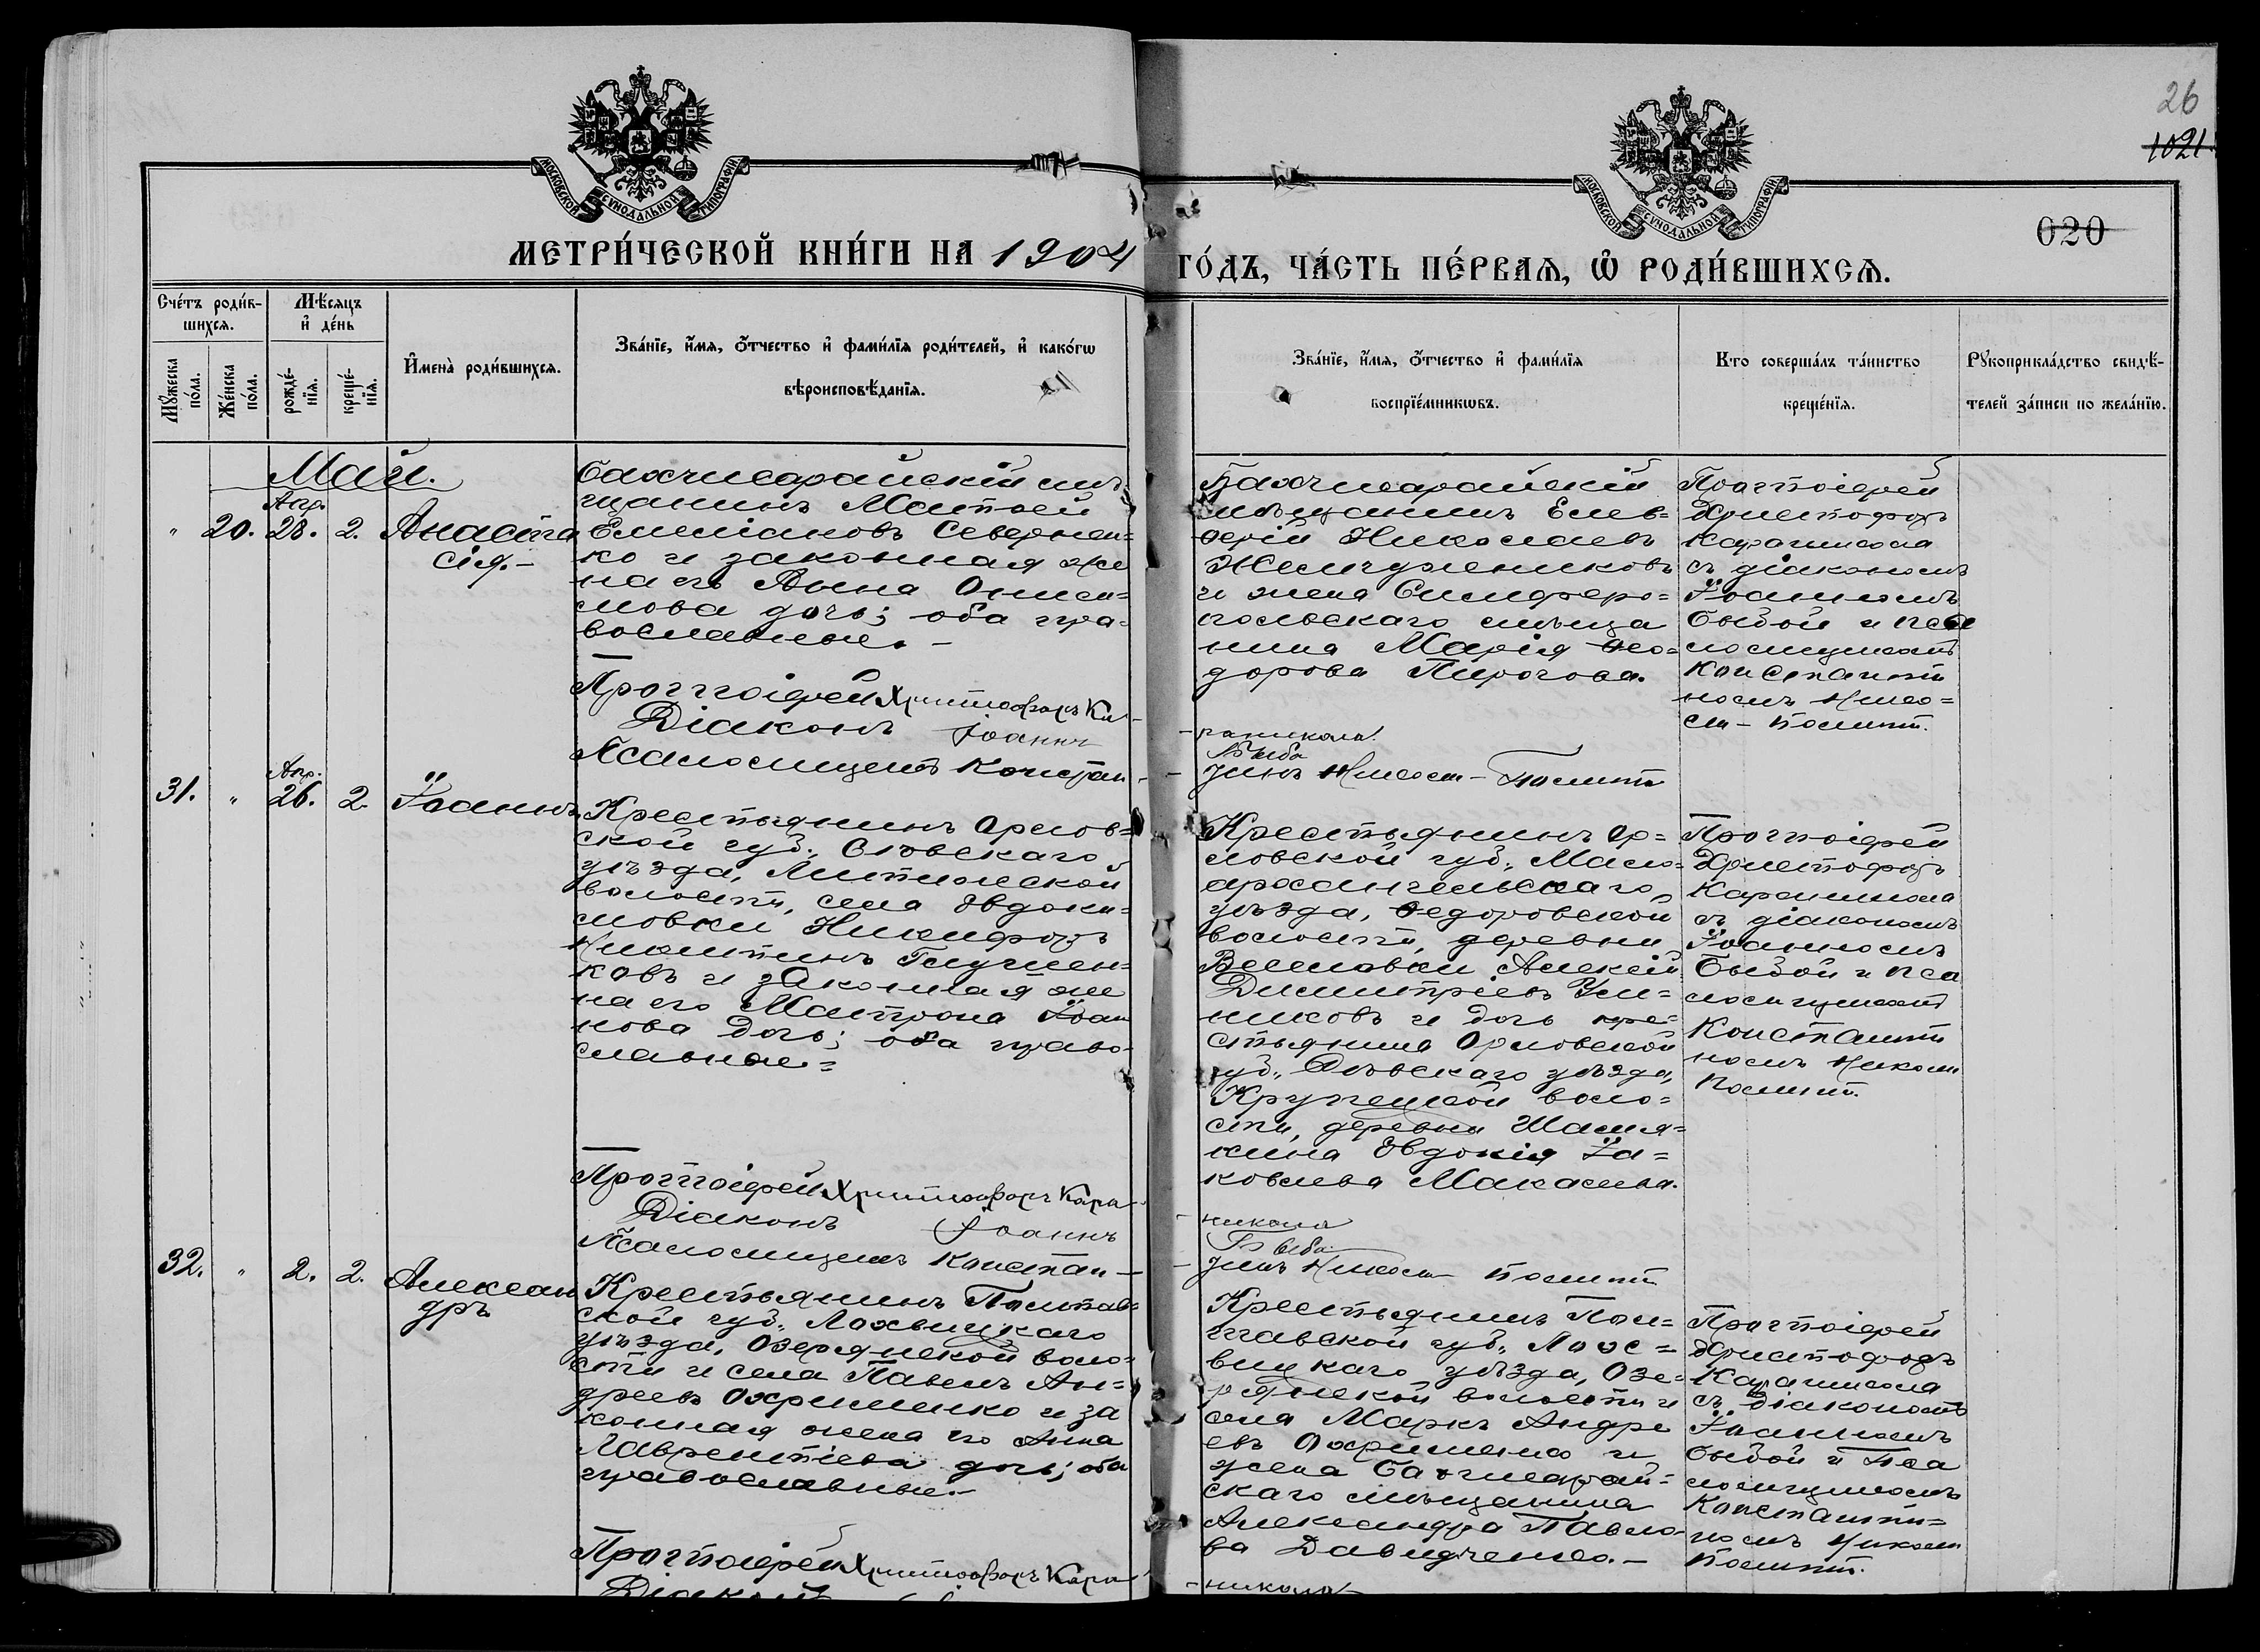 26
1021
020
МОСКОВСКОЙ СѴНОДАЛЬНОЙ ТИПОГРАФІИ
МОСКОВСКОЙ СѴНОДАЛЬНОЙ ТИПОГРАФІИ
МЕТРИ́ЧЕСКОЙ КНИ́ГИ НА 1904
ГО́ДЪ, ЧА́СТЬ ПЕ́РВАѦ, Ѽ РОДИ́ВШИХСѦ.
Сче́тъ роди́в-
шихсѧ.
Мꙋ́жеска
по́ла.
Же́нска
по́ла.
Мѣ́сѧцъ
и҆ де́нь
рожде́-
нїѧ.
креще́-
нїѧ.
И҆мена̀ роди́вшихсѧ.
Зва́нїе, и҆́мѧ, ѻ҆́тчество и҆ фами́лїѧ роди́телей, и҆ како́гѡ
вѣроисповѣ́данїѧ.
Зва́нїе, и҆́мѧ, ѻ҆́тчество и҆ фами́лїѧ
воспрїе́мникѡвъ.
Кто соверша́лъ та́инство
креще́нїѧ.
Рꙋкоприкла́дство свидѣ́-
телей за́писи по жела́нїю.
Май.
" 20. Апр. 28. 2. Анаста
сія.-
Бахчисарайскій мѣ-
щанинъ Матѳей
Емеліановъ Северинен-
ко и законная же
на его АннаОниси-
мова дочь; оба пра-
вославные.-
Бахчисарайскій
мѣщанинъ Елев-
ѳерій Николаевъ
Жемчужниковъ
и жена Симферо-
польскаго мѣща
нина Марія Ѳео-
дорова Пирогова.
Протоіерей
Христофоръ
Караникола
съ діакономъ
Іоанномъ
Быбой и пса
ломщикомъ
Константи
номъ Нико-
ли-Политъ.
Протоіерей Христофоръ Ка-
-раникола
Діаконъ Іоаннъ
Быба
Псаломщикъ Констан-
-тинъ Николи-Политъ
31. " Апр. 26. 2. Іоаннъ
Крестьянинъ Орлов-
ской губ., Сѣвскаго
уѣзда, Литижской
волости, села Евдоки-
мовки Никифоръ
Никитинъ
ковъ и законная же
на его Матрона Іоан
нова дочь; оба право-
славные=
Крестьянинъ Ор-
ловской губ., Мало-
архангельскаго
уѣзда, Ѳедоровской
волости, деревни
Алексѣй
Димитріевъ
никовъ и дочь кре-
стьянина Орловской
губ., Сѣвскаго уѣзда,
Крупецкой воло-
сти, деревни Шаля-
кина Евдокія Іа-
ковлева
Протоіерей
Христофоръ
Караникола
съ діакономъ
Іоанномъ
Быбой и пса
ломщикомъ
Константи
номъ Николи
Политъ.
Протоіерей Христофоръ Кара-
-никола
Діаконъ Іоаннъ
Быба
Псаломщикъ Констан-
-тинъ Николи Политъ
32. " 2. 2. Алексан
дръ
Крестьянинъ Полтав-
ской губ., Лохвицкаго
уѣзда, Озерянской воло-
сти и села Павелъ Ан-
дреевъ Охрименко и за
конная жена его Анна
Лаврентіева дочь; оба
православные.-
Крестьянинъ Пол-
тавской губ., Лох-
вицкаго уѣзда, Озе-
рянской волости и
села Маркъ Андре
евъ Охрименко и
жена Бахчисарай-
скаго мѣщанина
Александра Павло-
ва Давидченко.-
Протоіерей
Христофоръ
Караникола
съ діакономъ
Іоанномъ
Быбой и Пса
ломщикомъ
Константи-
номъ Николи
Политъ.
Протоіерей Христофоръ Кара-
-никола
Діаконъ